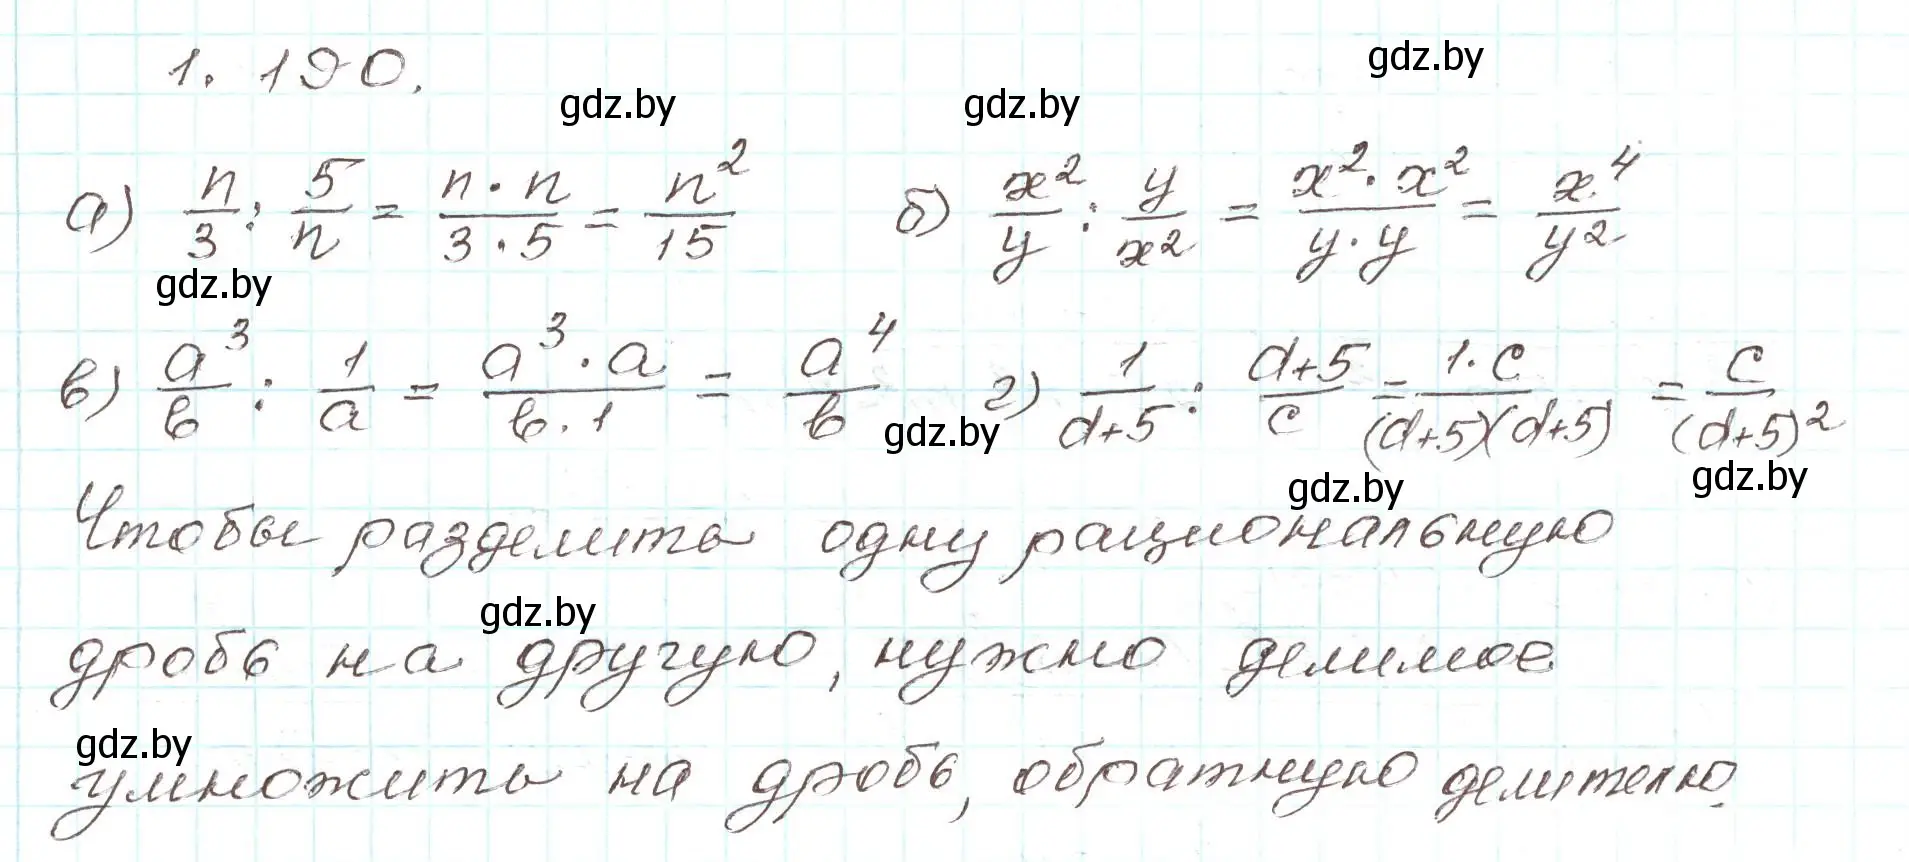 1.190.
gdz.by
gdz.by gdz.by
а) n/3 : 5/n = n·n/3·5 = n²/15 б) x²/y : y/x² = x²·x²/y·y = x⁴/y²
gdz.by
в) a³/b : 1/a = a³·a/b·1 = a⁴/b г) 1/d+5 : d+5/c = 1·c/(d+5)(d+5) = c/(d+5)²
gdz.by
gdz.by gdz.by
Чтобы разделить одну рациональную
gdz.by
дробь на другую, нужно делимое
gdz.by
умножить на дробь, обратную делителю.